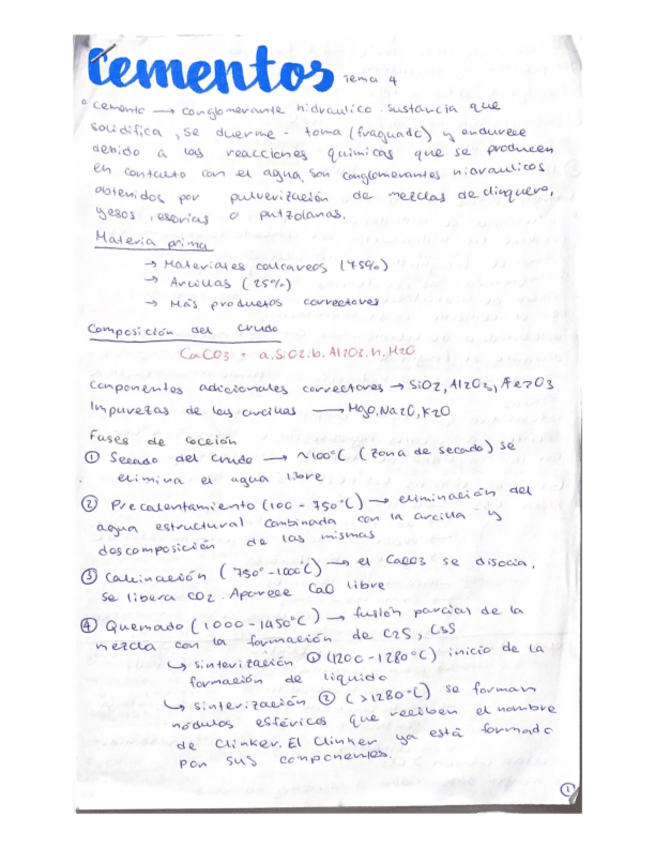 Cementos Tema 4
° Cemento → conglomerante hidraulico. sustancia que
solidifica, se duerme - toma (fraguado) y endurece
debido a las reacciones quimicas que se producen
en contacto con el agua. Son conglomerantes hidraulicos
obtenidos por pulverización de mezclas de clinquero,
yesos, escorias o putzolanas.
Materia prima
→ Materiales calcareos (75%)
→ Arcillas (25%)
→ Más productos correctores
Composición del crudo
CaCO3 + a.SiO2.b.Al2O3.n.H2O
Componentes adicionales correctores → SiO2, Al2O3, Fe2O3
Impurezas de las arcillas → MgO, Na2O, K2O
Fases de cocción
① Secado del crudo → ~100°C (zona de secado) se
elimina el agua libre
② Precalentamiento (100 - 750°C) → eliminación del
agua estructural combinada con la arcilla y
doscomposición de las mismas
③ Calcinación (750° - 1000°C) → el CaCO3 se disocia,
se libera CO2. Aparece CaO libre
④ Quemado (1000 - 1450°C) → fusión parcial de la
mezcla con la formación de C2S, C3S
↳ sinterización ① (1200 - 1280°C) inicio de la
formación de liquido
↳ sinterización ② (>1280°C) se forman
nódulos esféricos que reciben el nombre
de Clinker. El Clinker ya está formado
por sus componentes.
①